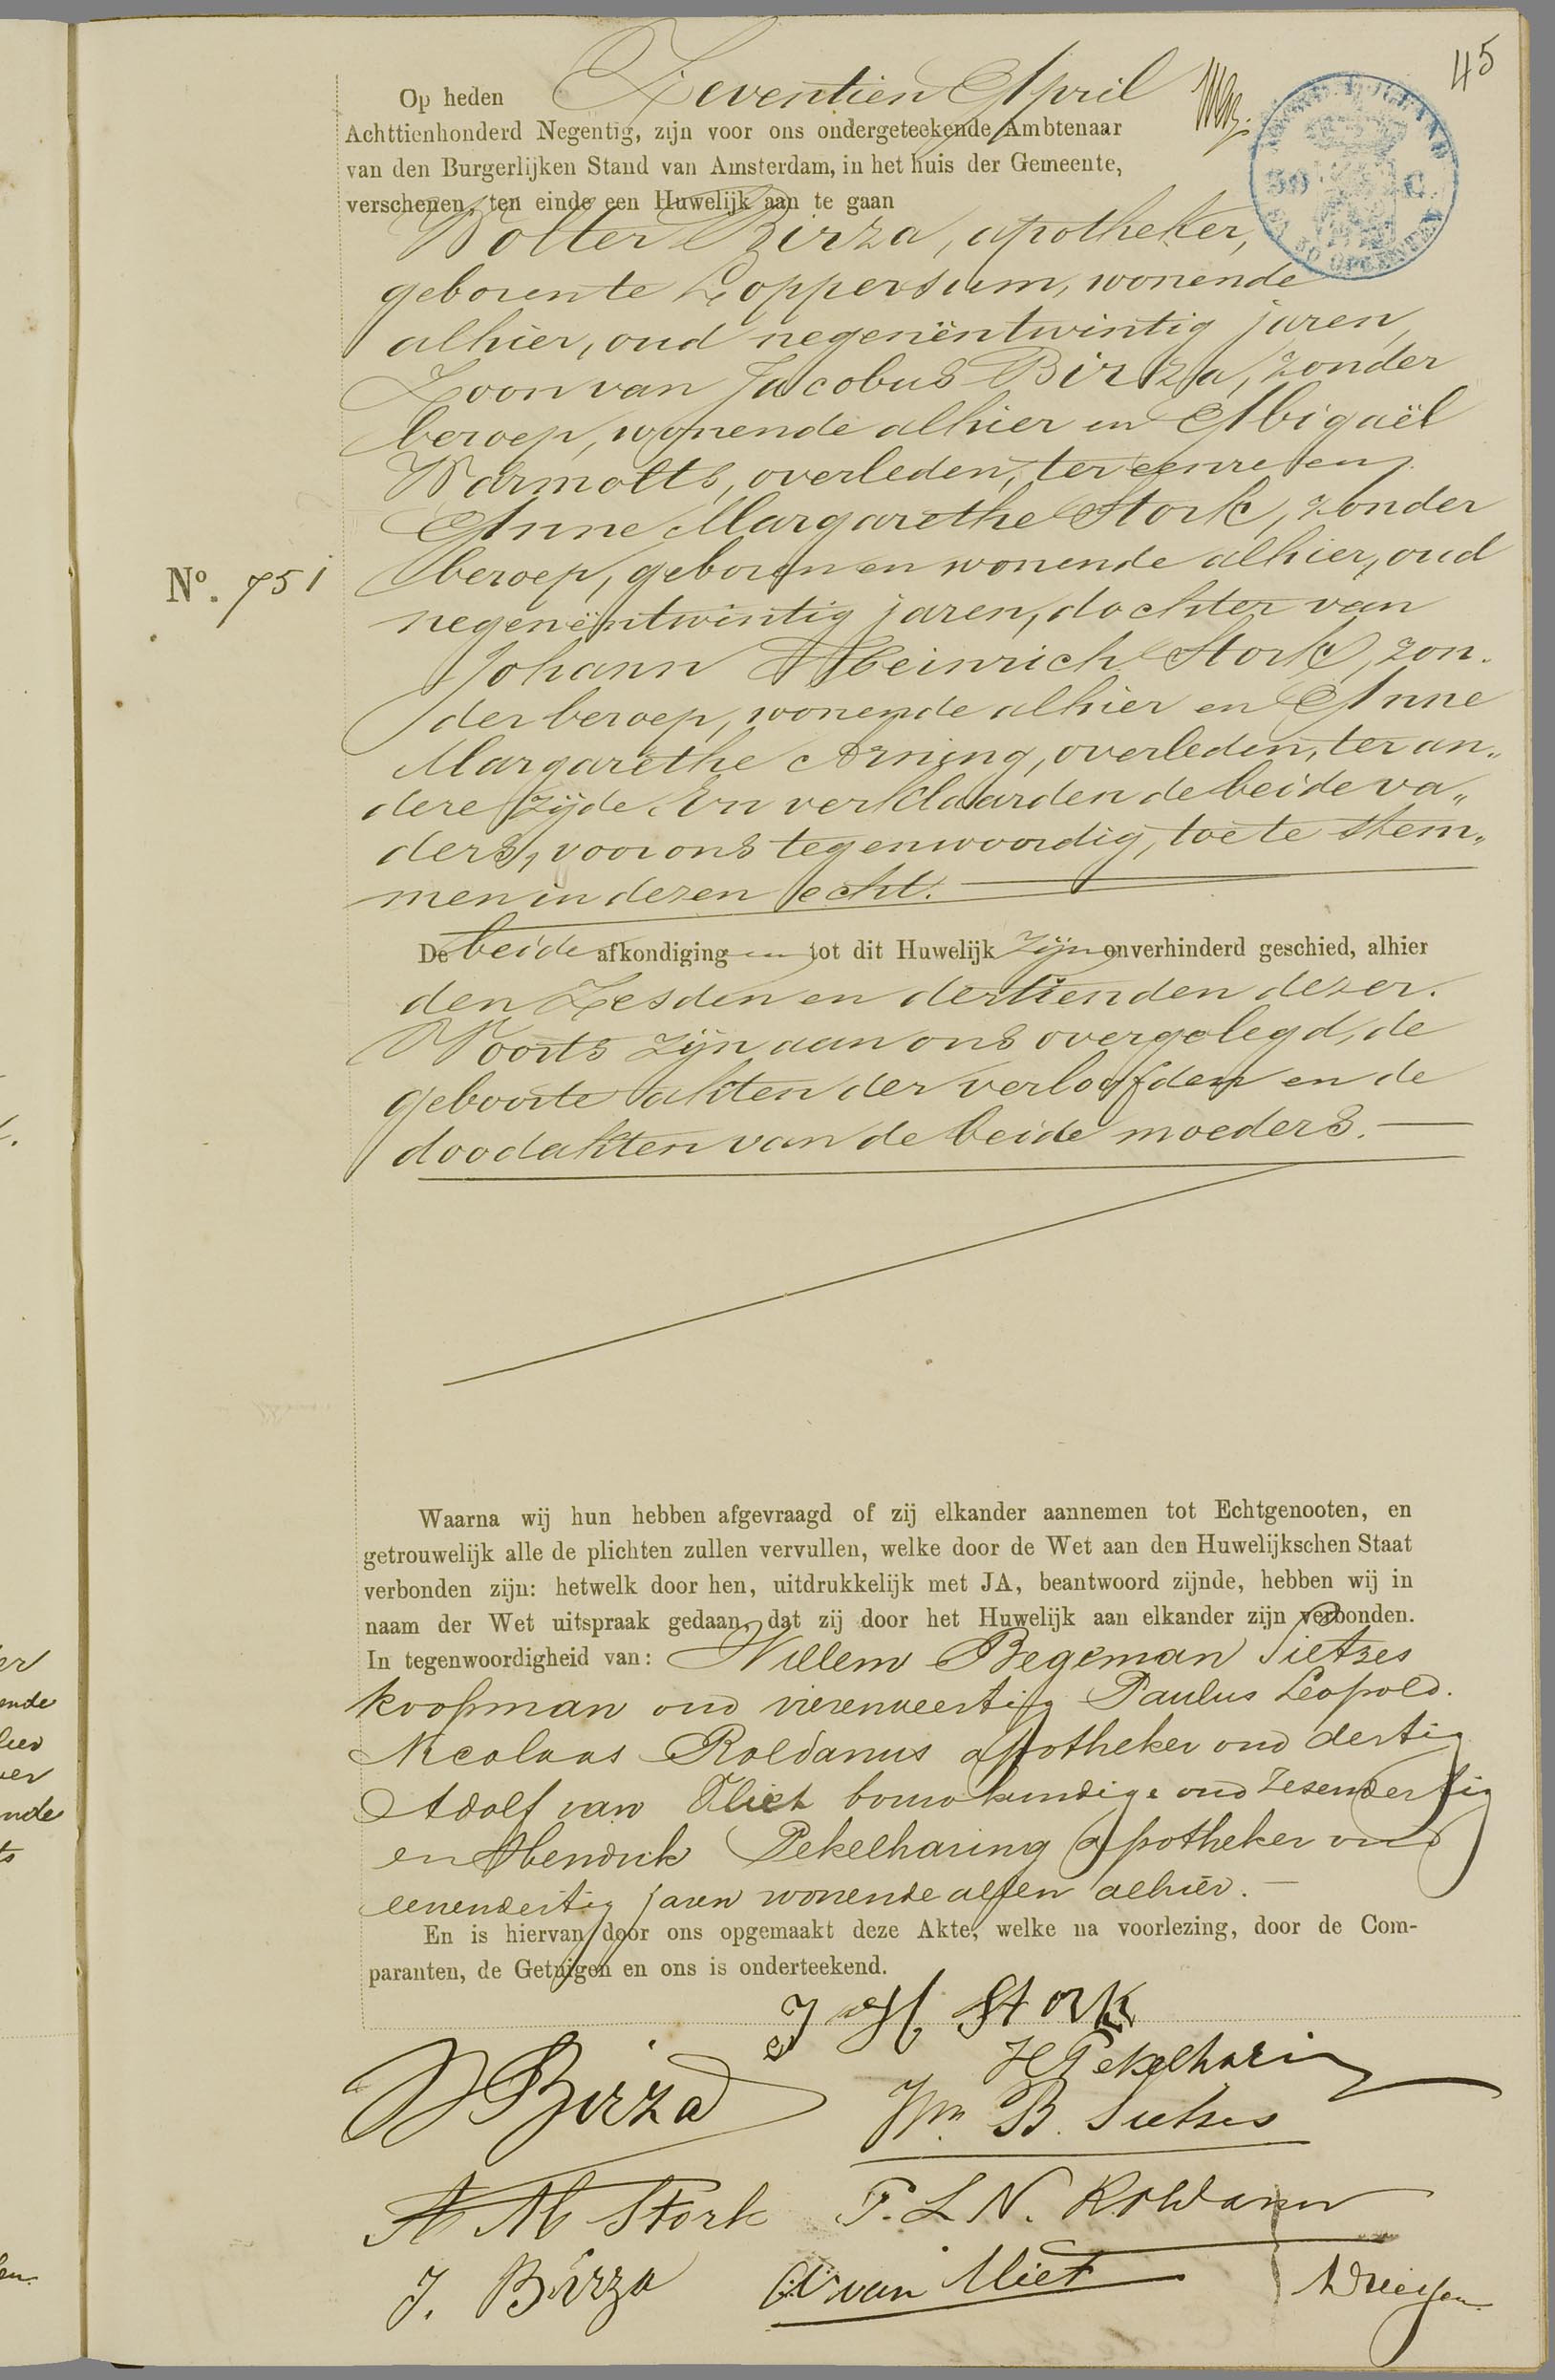 45
Op heden Zeventien April
Achttienhonderd Negentig, zijn voor ons ondergeteekende Ambtenaar
van den Burgerlijken Stand van Amsterdam, in het huis der Gemeente,
verschenen, ten einde een Huwelijk aan te gaan
Wolter Birza, apotheker,
geboren te Loppersum, wonende
alhier, oud negenëntwintig jaren,
Zoon van Jacobus Birza, zonder
beroep, wonende alhier en Abigaël
Warmolts, overleden, ter eenre en
Anne Margarethe Stork, zonder
beroep, geboren en wonende alhier, oud
No. 751
negenëntwintig jaren, dochter van
Johann Heinrich Stork, zon-
der beroep, wonende alhier en Anne
Margarethe Arning, overleden, ter an„
dere zijde. En verklaarden de beide va„
ders, voor ons tegenwoordig, toe te stem„
men in dezen echt.
De beide afkondigingen tot dit Huwelijk zijn onverhinderd geschied, alhier
den Zesden en dertienden dezer.
Voorts zijn aan ons overgelegd, de
geboorte akten der verloofden en de
doodakten van de beide moeders.
Waarna wij hun hebben afgevraagd of zij elkander aannemen tot Echtgenooten, en
getrouwelijk alle de plichten zullen vervullen, welke door de Wet aan den Huwelijkschen Staat
verbonden zijn: hetwelk door hen, uitdrukkelijk met JA, beantwoord zijnde, hebben wij in
naam der Wet uitspraak gedaan, dat zij door het Huwelijk aan elkander zijn verbonden.
In tegenwoordigheid van: Willem Begeman Sietzes
koopman oud vierenveertig Paulus Leopold.
Nicolaas Roldanus apotheker oud dertig
Adolf van Vliet bouwkundige oud zesendertig
en Hendrik Pekelharing apotheker oud
eenendertig jaren wonende allen alhier.
En is hiervan door ons opgemaakt deze Akte, welke na voorlezing, door de Com-
paranten, de Getuigen en ons is onderteekend.
J H Stork
W Birza
H Pekelharing
Wm. B. Sietzes
A M Stork
P. L. N. Roldanus
J. Birza
A van Vliet